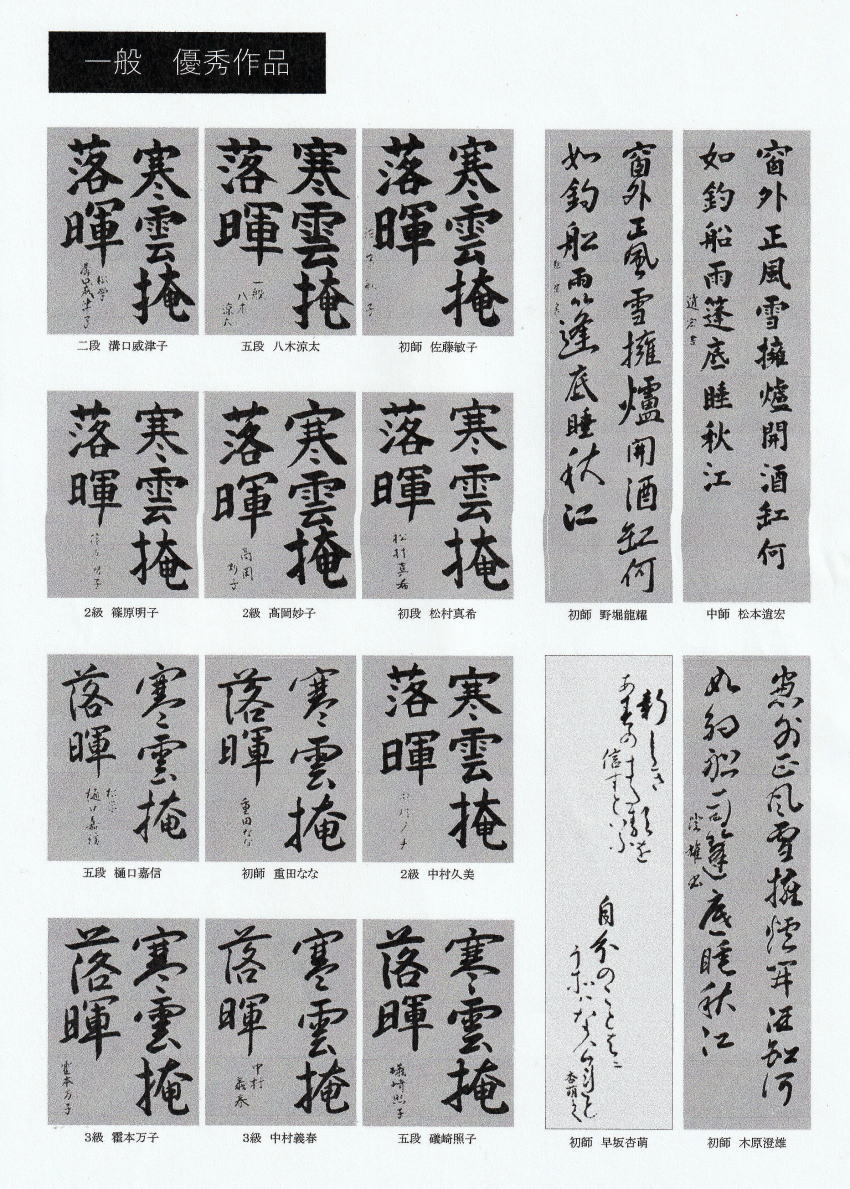 一般　優秀作品
寒雲掩
落暉
溝口威津子
二段 溝口威津子
寒雲掩
落暉
一般
八木
涼太
五段 八木涼太
寒雲掩
落暉
初師 佐藤敏子
窗外正風雪擁爐開酒缸何
如釣船雨篷底睡秋江
初師 野堀龍耀
窗外正風雪擁爐開酒缸何
如釣船雨篷底睡秋江
中師 松本逍宏
寒雲掩
落暉
2級 篠原明子
寒雲掩
落暉
高岡
妙子
2級 髙岡妙子
寒雲掩
落暉
松村真希
初段 松村真希
寒雲掩
落暉
樋口嘉信
五段 樋口嘉信
寒雲掩
落暉
重田なな
初師 重田なな
寒雲掩
落暉
2級 中村久美
新しき
信ずといふ
自分の
初師 早坂杏萌
窗外正風雪擁爐開酒缸何
如釣船雨篷底睡秋江
澄雄書
初師 木原澄雄
寒雲掩
落暉
霍本万子
3級 霍本万子
寒雲掩
落暉
中村
義春
3級 中村義春
寒雲掩
落暉
礒崎照子
五段 礒崎照子